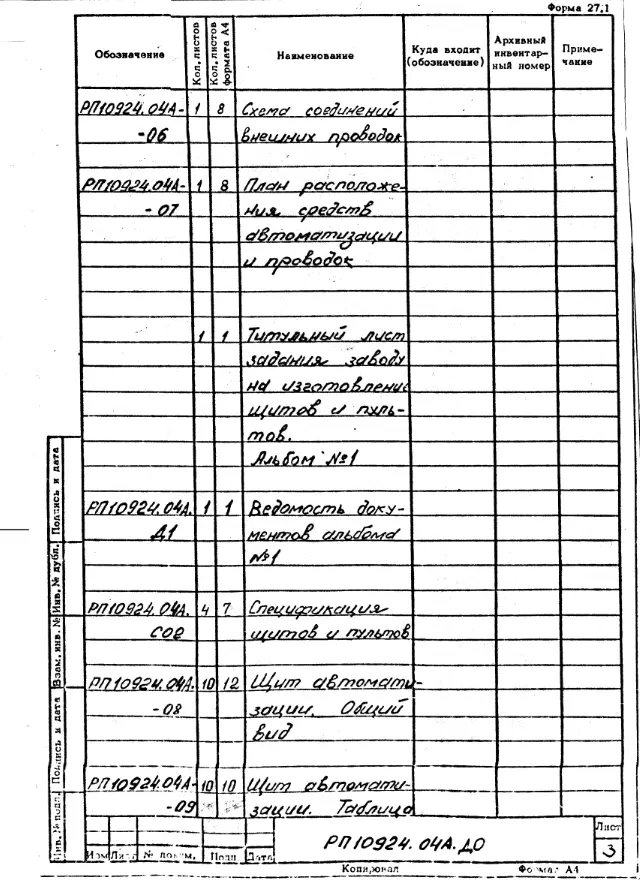 Форма 27.1
Обозначение Кол. листов Кол. листов формата А4 Наименование Куда входит (обозначение) Архивный инвентар- ный номер Приме- чание
РП10924.04А- 1 8 Схема соединений
-06 внешних проводок
РП10924.04А- 1 8 План расположе-
-07 ния средств
автоматизации
и проводок
1 1 Титульный лист
задания заводу
на изготовление
щитов и пуль-
тов.
Альбом №1
РП10924.04А. 1 1 Ведомость доку-
Д1 ментов альбома
№1
РП10924.04А. 4 7 Спецификация
СО2 щитов и пультов
РП10924.04А. 10 12 Щит автомати-
-08 зации. Общий
вид
РП10924.04А- 10 10 Щит автомати-
-09 зации. Таблица
Подпись и дата
Инв. № дубл.
Взам. инв. №
Подпись и дата
Инв. № подл.
Изм Лист № докум. Подп. Дата
РП10924.04А.ДО
Лист
3
Копировал Формат А4